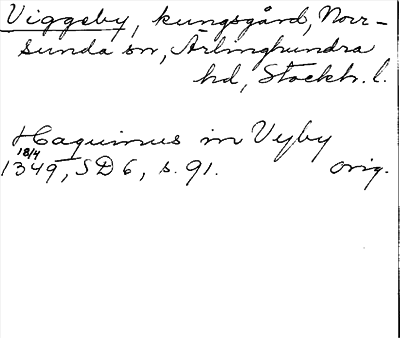 Viggeby, kungsgård, Norr-
sunda sn, Ärlinghundra
hd, Stockh. l.
Haquinus in Vijby
18/4
1349, SD 6, s. 91. orig.